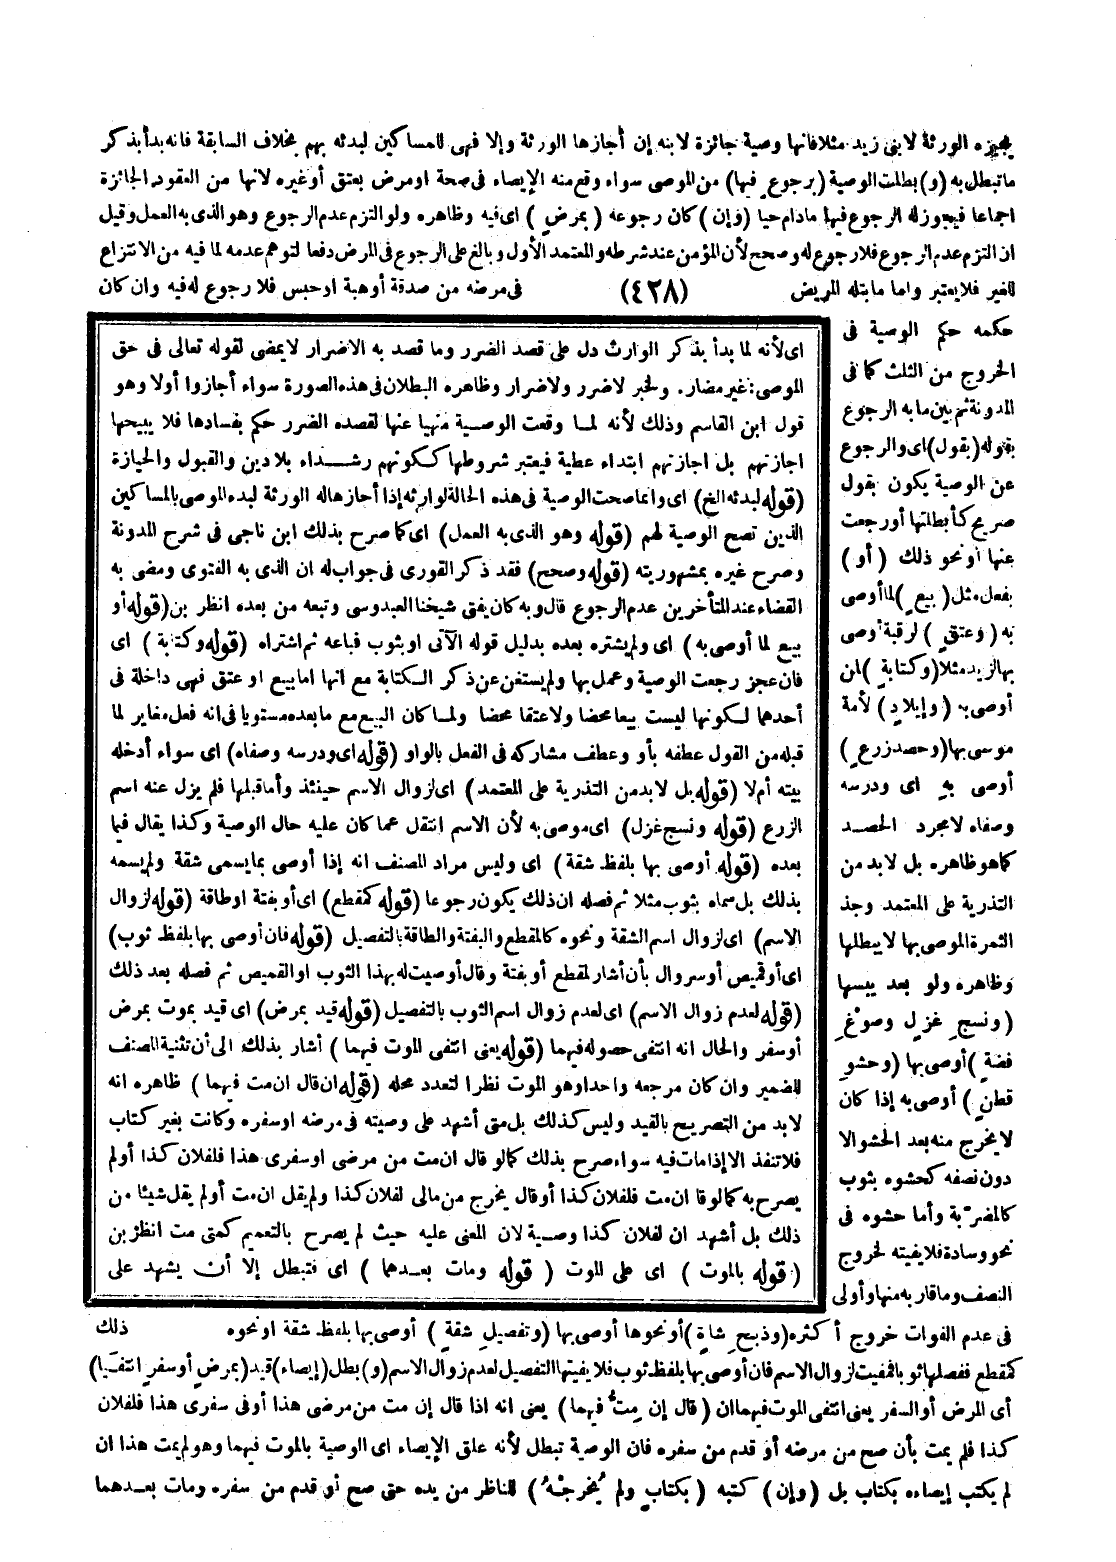 يجيزه الورثة لابنى زيد مثلا فانها وصية جائزة لابنه إن أجازها الورثة وإلا فهى للمساكين لبدئه بهم بخلاف السابقة فانه بدأ بذكر
ما تبطل به (و) بطلت الوصية (برجوع فيها) من الموصى سواء وقع منه الإيصاء فى صحة او مرض بعتق أو غيره لانها من العقود الجائزة
اجماعا فيجوز له الرجوع فيها مادام حيا (وإن) كان رجوعه (بمرض) اى فيه وظاهره ولو التزم عدم الرجوع وهو الذى به العمل وقيل
ان التزم عدم الرجوع فلا رجوع له وصحح لأن المؤمن عند شرطه والمعتمد الأول وبالغ على الرجوع فى المرض دفعا لتوهم عدمه لما فيه من الانتزاع
للغير فلا يعتبر واما ما بتله المريض (٤٢٨) فى مرضه من صدقة أو هبة او حبس فلا رجوع له فيه وان كان
حكمه حكم الوصية فى
الخروج من الثلث كما فى
المدونة ثم بين ما به الرجوع
بقوله (بقول) اى والرجوع
عن الوصية يكون بقول
صريح كأبطلتها أو رجعت
عنها او نحو ذلك (أو)
بفعل مثل (بيع) لما أوصى
به (وعتق) لرقبة أوصى
بها لزيد مثلا (وكتابة) لمن
أوصى به (وإيلاد) لأمة
موسى بها (وحصد زرع)
أوصى به اى ودرسه
وصفاه لا مجرد الحصد
كما هو ظاهره بل لابد من
التذرية على المعتمد وجذ
الثمرة الموصى بها لا يبطلها
وظاهره ولو بعد يبسها
(ونسج غزل وصوغ
فضة) أوصى بها (وحشو
قطن) أوصى به إذا كان
لا يخرج منه بعد الحشو الا
دون نصفه كحشوه بثوب
كالمضربة وأما حشوه فى
نحو وسادة فلا يفيته لخروج
النصف وما قاربه منها وأولى
اى لأنه لما بدأ بذكر الوارث دل على قصد الضرر وما قصد به الاضرار لا يمضى لقوله تعالى فى حق
الموصى: غير مضار. ولخبر لا ضرر ولا ضرار وظاهره البطلان فى هذه الصورة سواء أجازوا أولا وهو
قول ابن القاسم وذلك لأنه لما وقعت الوصية منهيا عنها لقصده الضرر حكم بفسادها فلا يبيحها
اجازتهم بل اجازتهم ابتداء عطية فيعتبر شروطها ككونهم رشداء بلا دين والقبول والحيازة
(قوله لبدئه الخ) اى وانما صحت الوصية فى هذه الحالة لوارثه إذا أجازها له الورثة لبدء الموصى بالمساكين
الذين تصح الوصية لهم (قوله وهو الذى به العمل) اى كما صرح بذلك ابن ناجى فى شرح المدونة
وصرح غيره بمشهوريته (قوله وصحح) فقد ذكر القورى فى جواب له ان الذى به الفتوى ومضى به
القضاء عند المتأخرين عدم الرجوع قال وبه كان يفتى شيخنا العبدوسى وتبعه من بعده انظر بن (قوله أو
بيع لما أوصى به) اى ولم يشتره بعده بدليل قوله الآتى او بثوب فباعه ثم اشتراه (قوله وكتابة) اى
فان عجز رجعت الوصية وعمل بها ولم يستغن عن ذكر الكتابة مع انها اما بيع او عتق فهى داخلة فى
أحدهما لكونها ليست بيعا محضا ولا عتقا محضا ولما كان البيع مع ما بعده مستويا فى انه فعل مغاير لما
قبله من القول عطفه بأو وعطف مشاركه فى الفعل بالواو (قوله اى ودرسه وصفاه) اى سواء أدخله
بيته أم لا (قوله بل لابد من التذرية على المعتمد) اى لزوال الاسم حينئذ وأما قبلها فلم يزل عنه اسم
الزرع (قوله ونسج غزل) اى موصى به لأن الاسم انتقل عما كان عليه حال الوصية وكذا يقال فيما
بعده (قوله أوصى بها بلفظ شقة) اى وليس مراد المصنف انه إذا أوصى بما يسمى شقة ولم يسمه
بذلك بل سماه بثوب مثلا ثم فصله ان ذلك يكون رجوعا (قوله كمقطع) اى أو بفتة او طاقة (قوله لزوال
الاسم) اى لزوال اسم الشقة ونحوه كالمقطع والبفتة والطاقة بالتفصيل (قوله فان أوصى بها بلفظ ثوب)
اى أو قميص أو سروال بأن أشار لمقطع أو بفتة وقال أوصيت له بهذا الثوب او القميص ثم فصله بعد ذلك
(قوله لعدم زوال الاسم) اى لعدم زوال اسم الثوب بالتفصيل (قوله قيد بمرض) اى قيد بموت بمرض
أو سفر والحال انه انتفى حصوله فيهما (قوله يعنى انتفى الموت فيهما) أشار بذلك الى أن تثنية المصنف
للضمير وان كان مرجعه واحدا وهو الموت نظرا لتعدد محله (قوله ان قال ان مت فيهما) ظاهره انه
لابد من التصريح بالقيد وليس كذلك بل متى أشهد على وصيته فى مرضه او سفره وكانت بغير كتاب
فلا تنفذ الا إذا مات فيه سواء صرح بذلك كما لو قال ان مت من مرضى او سفرى هذا فلفلان كذا أو لم
يصرح به كما لو قال ان مت فلفلان كذا أو قال يخرج من مالى لفلان كذا ولم يقل ان مت أو لم يقل شيئا من
ذلك بل أشهد ان لفلان كذا وصية لان المعنى عليه حيث لم يصرح بالتعميم كمتى مت انظر بن
(قوله بالموت) اى على الموت (قوله ومات بعدهما) اى فتبطل إلا أن يشهد على
فى عدم الفوات خروج أكثره (وذبح شاة) أو نحوها أوصى بها (وتفصيل شقة) أوصى بها بلفظ شقة او نحوه ذلك
كمقطع ففصلها ثوبا فمفيت لزوال الاسم فان أوصى بها بلفظ ثوب فلا يفيتها التفصيل لعدم زوال الاسم (و) بطل (إيصاء) قيد (بمرض أو سفر انتفيا)
أى المرض أو السفر يعنى انتفى الموت فيهما ان (قال إن مت فيهما) يعنى انه اذا قال إن مت من مرضى هذا أو فى سفرى هذا فلفلان
كذا فلم يمت بأن صح من مرضه أو قدم من سفره فان الوصية تبطل لأنه علق الإيصاء اى الوصية بالموت فيهما وهو لم يمت هذا ان
لم يكتب إيصاءه بكتاب بل (وإن) كتبه (بكتاب ولم يخرجه) للناظر من يده حتى صح أو قدم من سفره ومات بعدهما